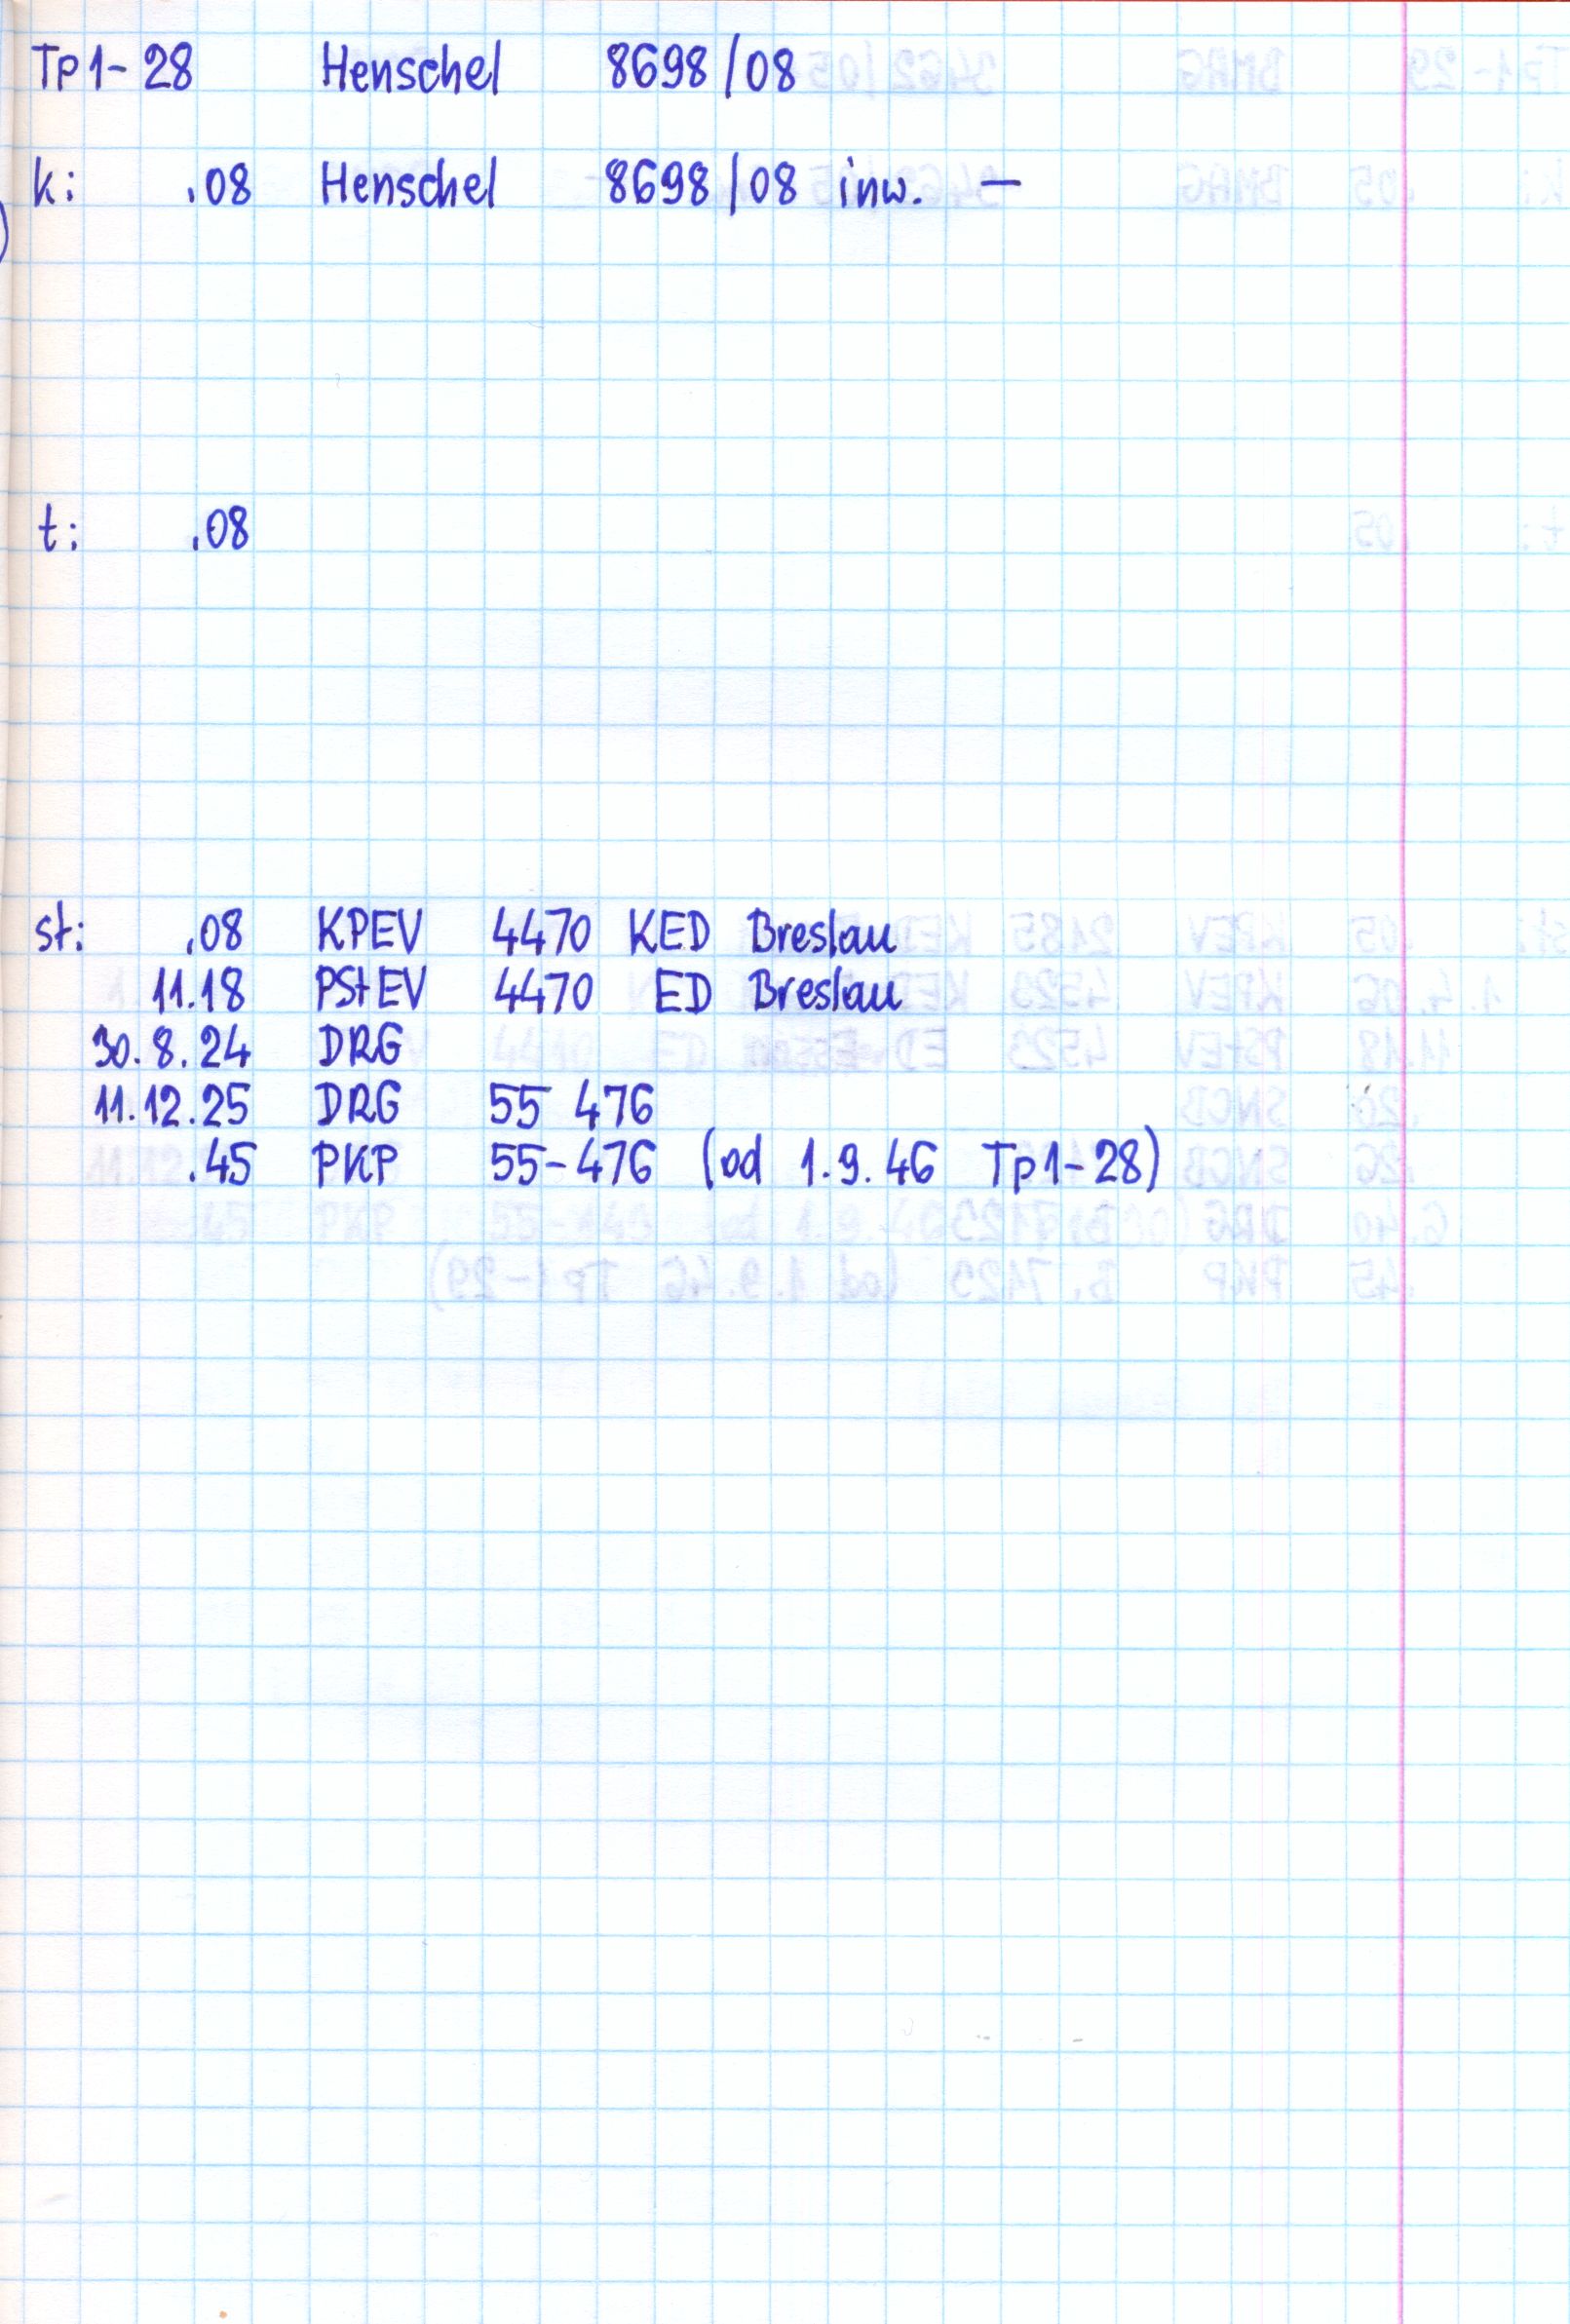 Tp1-28 Henschel 8698/08
k: .08 Henschel 8698/08 inw. —
t: .08
st: .08 KPEV 4470 KED Breslau
11.18 PStEV 4470 ED Breslau
30.8.24 DRG
11.12.25 DRG 55 476
.45 PKP 55-476 (od 1.9.46 Tp1-28)